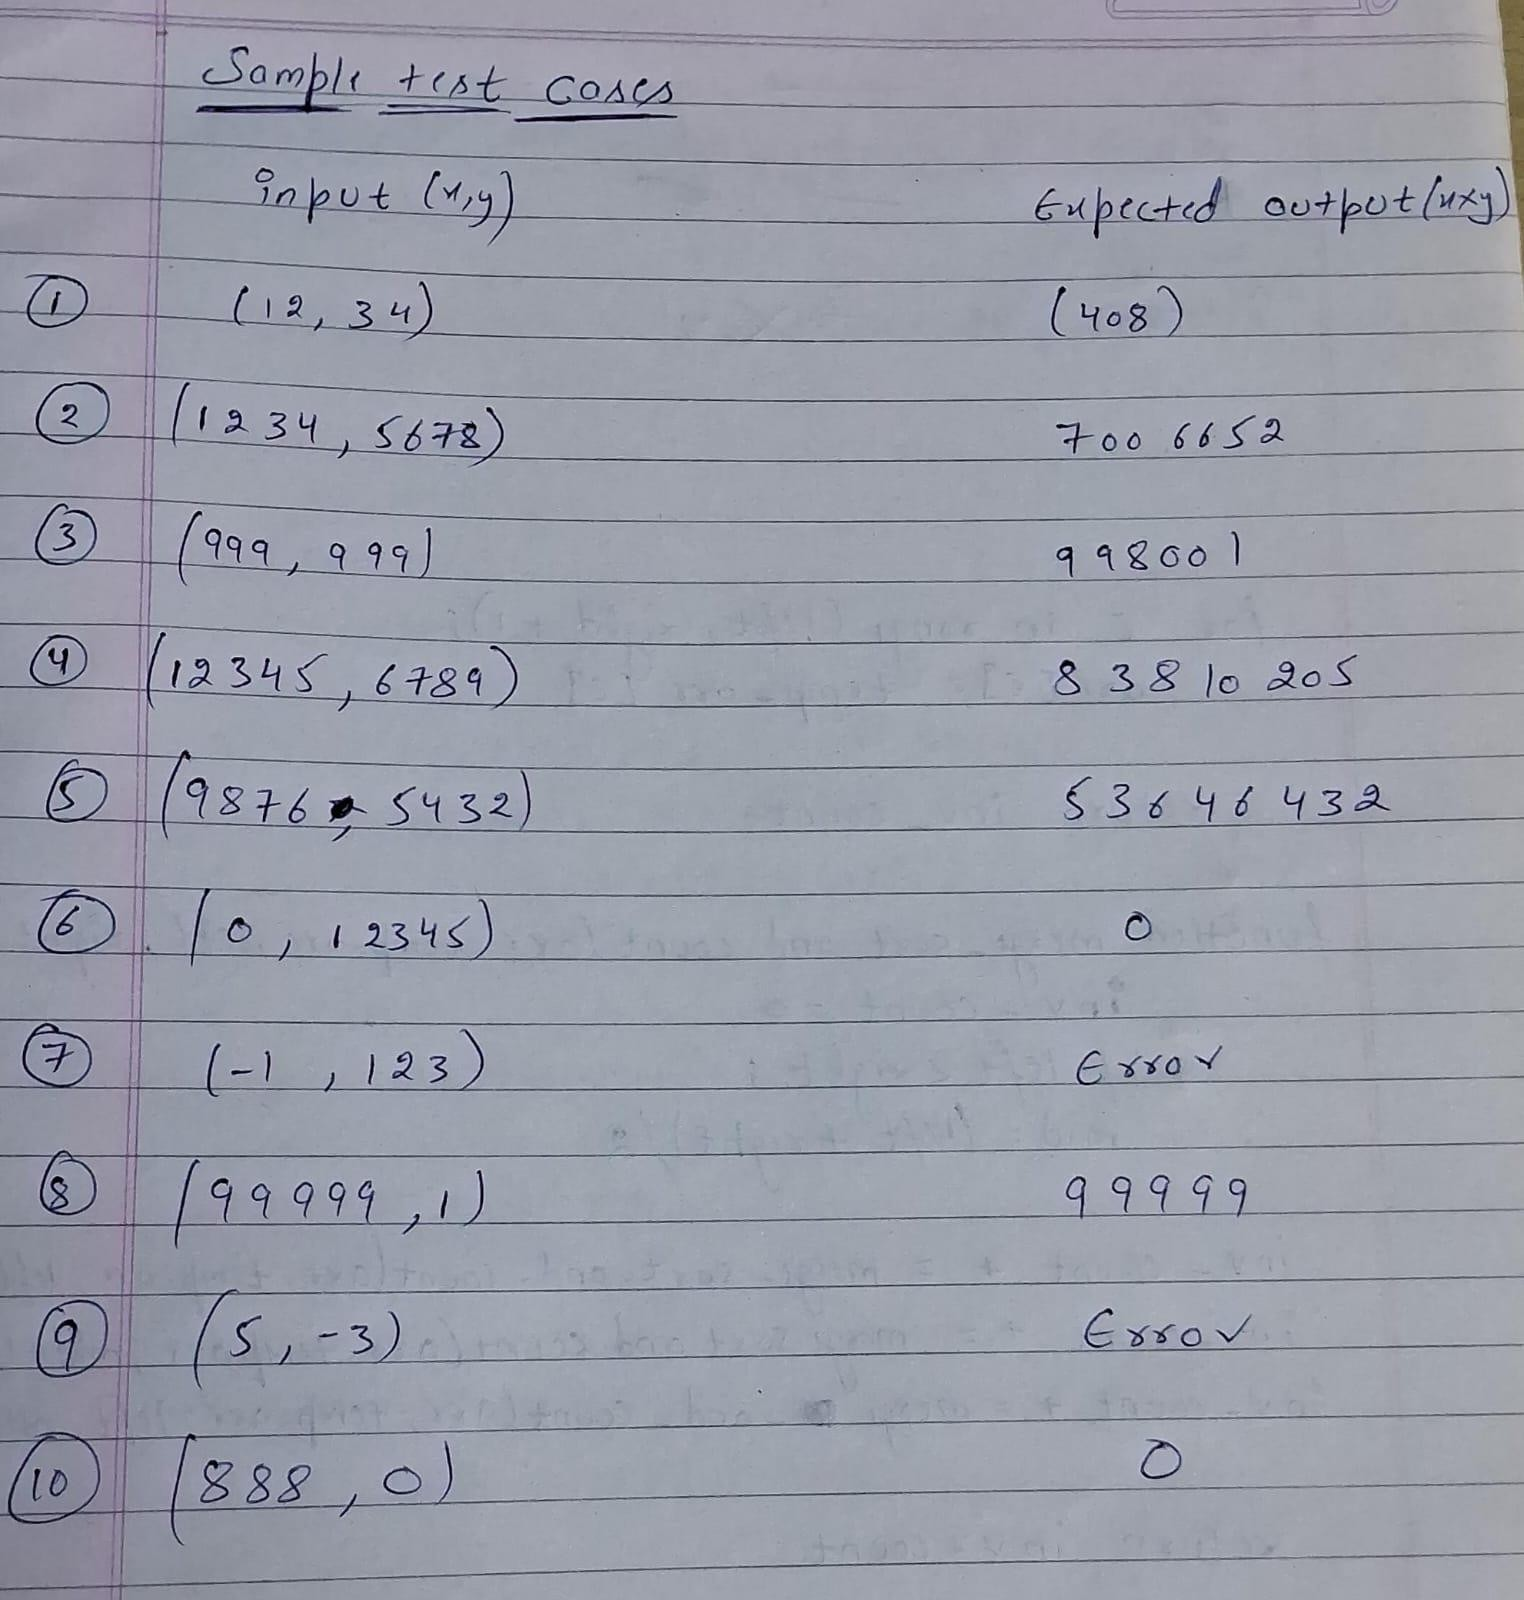 Sample test cases
input (x,y) Expected output (x×y)
① (12, 34) (408)
② (1234, 5678) 7006652
③ (999, 999) 998001
④ (12345, 6789) 83810205
⑤ (9876, 5432) 53646432
⑥ (0, 12345) 0
⑦ (-1, 123) Error
⑧ (99999, 1) 99999
⑨ (5, -3) Error
⑩ (888, 0) 0